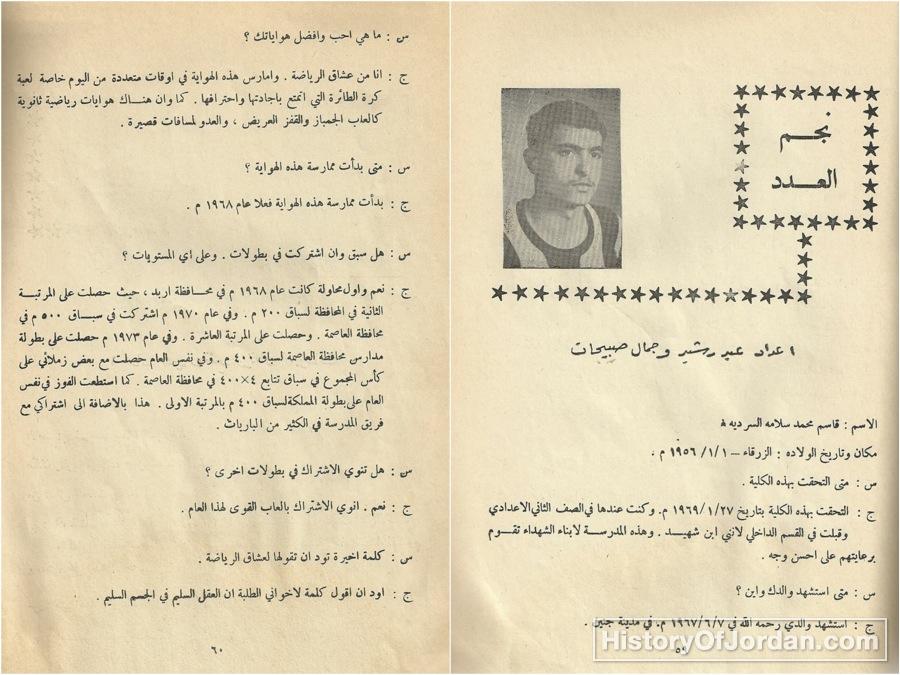 نجم
العدد
اعداد عبد رشيد وجمال صبيحات
الاسم : قاسم محمد سلامه السرديه
مكان وتاريخ الولاده : الزرقاء – ١/١/١٩٥٦ م .
س : متى التحقت بهذه الكلية .
ج : التحقت بهذه الكلية بتاريخ ١٩٦٩/١/٢٧ م. وكنت عندها في الصف الثاني الاعدادي
وقبلت في القسم الداخلي لانني ابن شهيد . وهذه المدرسة لابناء الشهداء تقوم
برعايتهم على احسن وجه .
س : متى استشهد والدك واين ؟
ج : استشهد والدي رحمه الله في ١٩٦٧/٦/٧ م. في مدينة جنين .
٥٩
HistoryOfJordan.com
س : ما هي احب وافضل هواياتك ؟
ج : انا من عشاق الرياضة . وامارس هذه الهواية في اوقات متعددة من اليوم خاصة لعبة
كرة الطائرة التي اتمتع باجادتها واحترافها . كما وان هناك هوايات رياضية ثانوية
كالعاب الجمباز والقفز العريض ، والعدو لمسافات قصيرة .
س : متى بدأت ممارسة هذه الهواية ؟
ج : بدأت ممارسة هذه الهواية فعلا عام ١٩٦٨ م .
س : هل سبق وان اشتركت في بطولات . وعلى اي المستويات ؟
ج : نعم واول محاولة كانت عام ١٩٦٨ م في محافظة اربد ، حيث حصلت على المرتبة
الثانية في المحافظة لسباق ٢٠٠ م . وفي عام ١٩٧٠ م اشتركت في سباق ٥٠٠ م في
محافظة العاصمة . وحصلت على المرتبة العاشرة . وفي عام ١٩٧٣ م حصلت على بطولة
مدارس محافظة العاصمة لسباق ٤٠٠ م . وفي نفس العام حصلت مع بعض زملائي على
كأس المجموع في سباق تتابع ٤×٤٠٠ في محافظة العاصمة . كما استطعت الفوز في نفس
العام على بطولة المملكة لسباق ٤٠٠ م بالمرتبة الاولى . هذا بالاضافة الى اشتراكي مع
فريق المدرسة في الكثير من المباريات .
س : هل تنوي الاشتراك في بطولات اخرى ؟
ج : نعم . انوي الاشتراك بالعاب القوى لهذا العام .
س : كلمة اخيرة تود ان تقولها لعشاق الرياضة .
ج : اود ان اقول كلمة لاخواني الطلبة ان العقل السليم في الجسم السليم .
٦٠